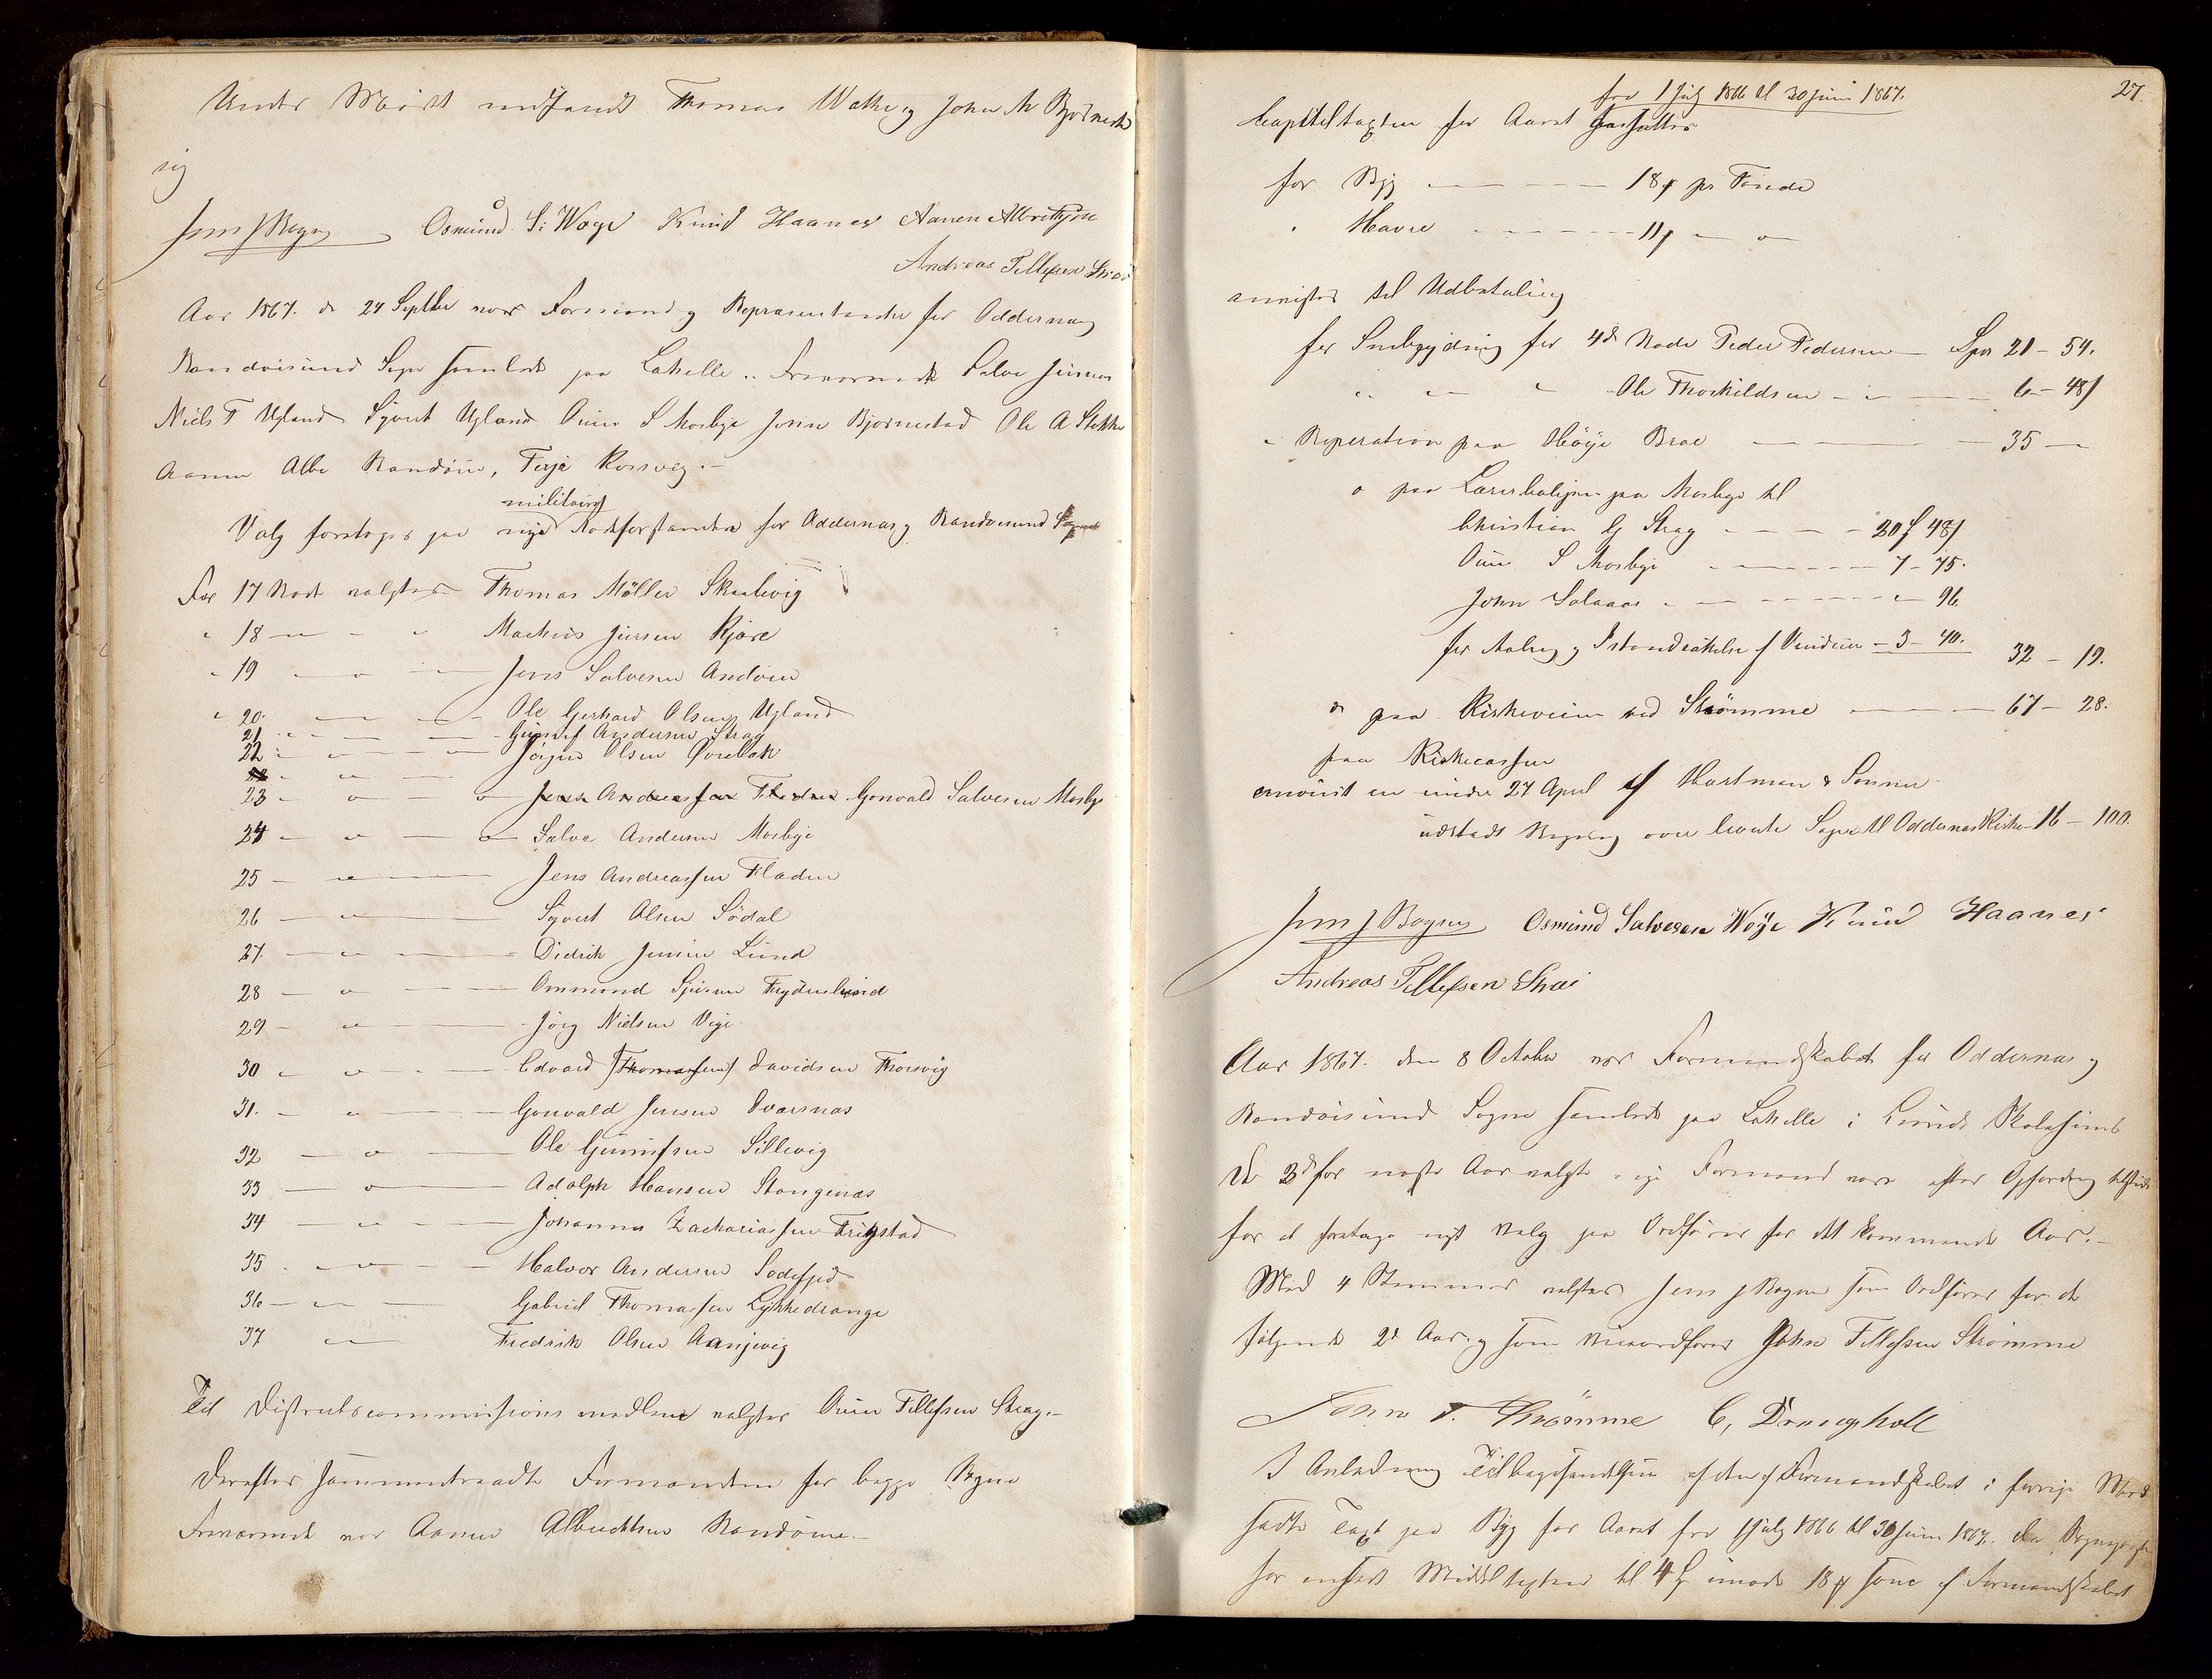 Under Mödet indfandt Thomas Watne og John A Bjørnestad
sig
Jens J Bögen Osmund S: Wøge Knud Haanes Aanen Albretsen
Andreas Tellefsen Strai
Aar 1867. d 24 Septbr var Formænd og Repræsentanter for Oddernæs og
Randøsund Sogn samlede paa Lahelle. Fraværende Salve Jensen
Niels T Ugland Sjvert Ugland Ouen S Mosbye Jens Bjørnestad Ole A Stokke
Aanen Albr Randøen, Terje Korsvig.-
militaire
Valg foretoges paa nye Rodeforstandere for Oddernæs og Randøsund
For 17 Rode valgtes Thomas Möller Skaalevig
" 18 — " — Mathias Jensen Kjære
" 19 — " — Jens Salvesen Andøen
" 20 — Ole Gerhard Olsen Ugland
21 — Gunuf Andersen Strag
22 — Jörgen Olsen Øvrebøk
23 — " — Jens Andreassen Fladen Gonvald Salvesen Mosbye
24 — " — Salve Andersen Mosbye
25 — " — Jens Andreassen Fladen
26 — " — Sjvert Olsen Södal
27 — " — Didrik Jensen Lund
28 — " — Ommund Frydenlund
29 — " — Jörg Nielsen Vige
30 — " — Edvard (Thomassen) Davidsen Thorsvig
31. — " — Gonvald Jensen Dværsnæs
32 — " — Ole Gunufsen Sillevig
33 — " — Adolph Hansen Stangenæs
34 — " — Johannes Zachariassen Frigstad
35 — " — Halvor Andersen
36 — " — Gabriel Thomassen Lykkedrange
37 — " — Fredrik Olsen Aanjevig
Til Districtscommissions medlem valgtes Ouen Tellefsen Strag.-
Derefter sammentraadte Formændene for begge Sogne
Fraværende var Aanen Albrechtsen Randøen.-
27.
fra 1 July 1866 til 30 Juni 1867.
Capitelstaxten for Aaret forfattes
for Byg — — — 18 ß pr Tönde
" Havre — — — 11 ß — " —
anvistes til Udbetaling
for Snebrydning for 4de Rode Peder Pedersen — Spd 21 - 54.
" " " Ole Thorkildsen — " — 6 - 48 ß
" Reperation paa Höye Broe — — 35 —
" paa paa Mosbye til
Christian G Strag — — — 20 - 48 ß
Ouen S Mosbye — — — 7 - 75.
John Salaaas — — — " - 96.
for Aaling og Istandsættelse af — 3 - 40. 32 - 19.
do paa Kirkeveien ved Strömme — — 67 - 28.
paa Kirkecassen
anvist en under 27 April af Hartman & Sönner
udstedt Regning over leverte Sager til Oddernæs Kirke 16 - 100.
Jens J Bögen Osmund Salvesen Wöÿe Knud Haanes
Andreas Tellefsen Strai
Aar 1867. den 8 October var Formandskabet for Oddernæs og
Randøsund Sogne samlede paa Lahelle i Lunds Skolehuus
De for næste Aar valgte nye Formænd vare efter Opfordring tilstede
for at foretage nyt Valg paa Ordförer for det kommende Aar.-
Med 4 Stemmer valgtes Jens J Bögen som Ordförer for de
fölgende 2de Aar og som Viceordförer John Tellefsen Strömme
John T. Strömme C, Drangsholt
I Anledning Tilbagesendelsen af den af Formandskabet i forrige Möde
satte Taxt paa Byg for Aaret fra 1 July 1866 til 30 Juni 1867. da
for ansat Middeltaxten til 4 imod 18 ß som af Formandskabet